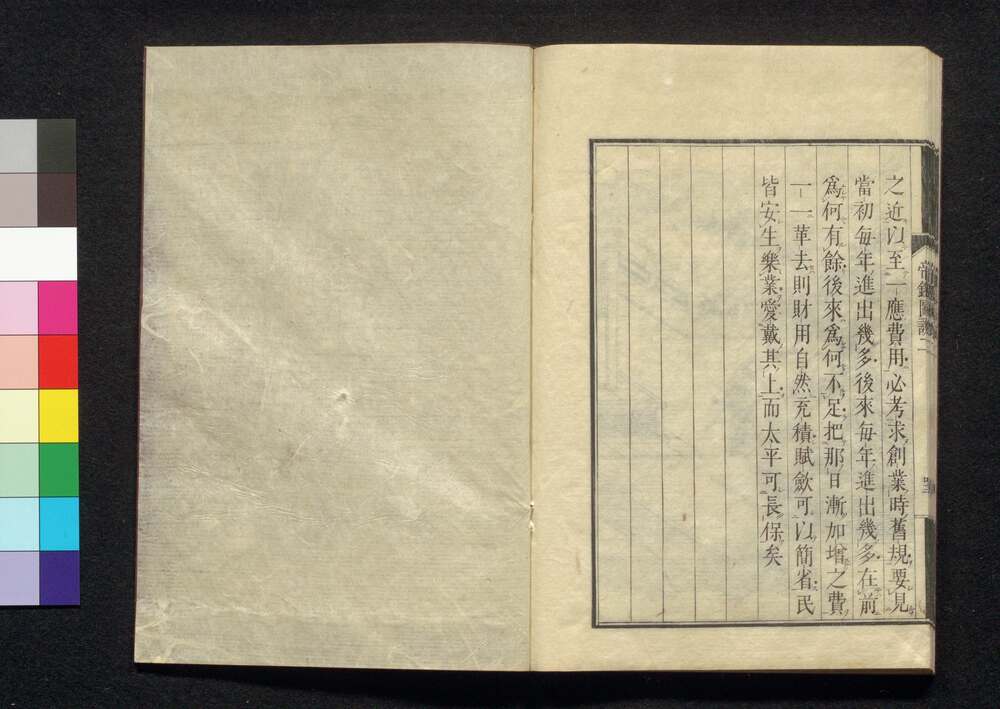 之近以至一應費用必考求創業時舊規要見
當初每年進出幾多後來每年進出幾多在前
爲何有餘後來爲何不足把那日漸加增之費
一一革去則財用自然充積賦歛可以簡省民
皆安生樂業愛戴其上而太平可長保矣
帝鑑圖說二